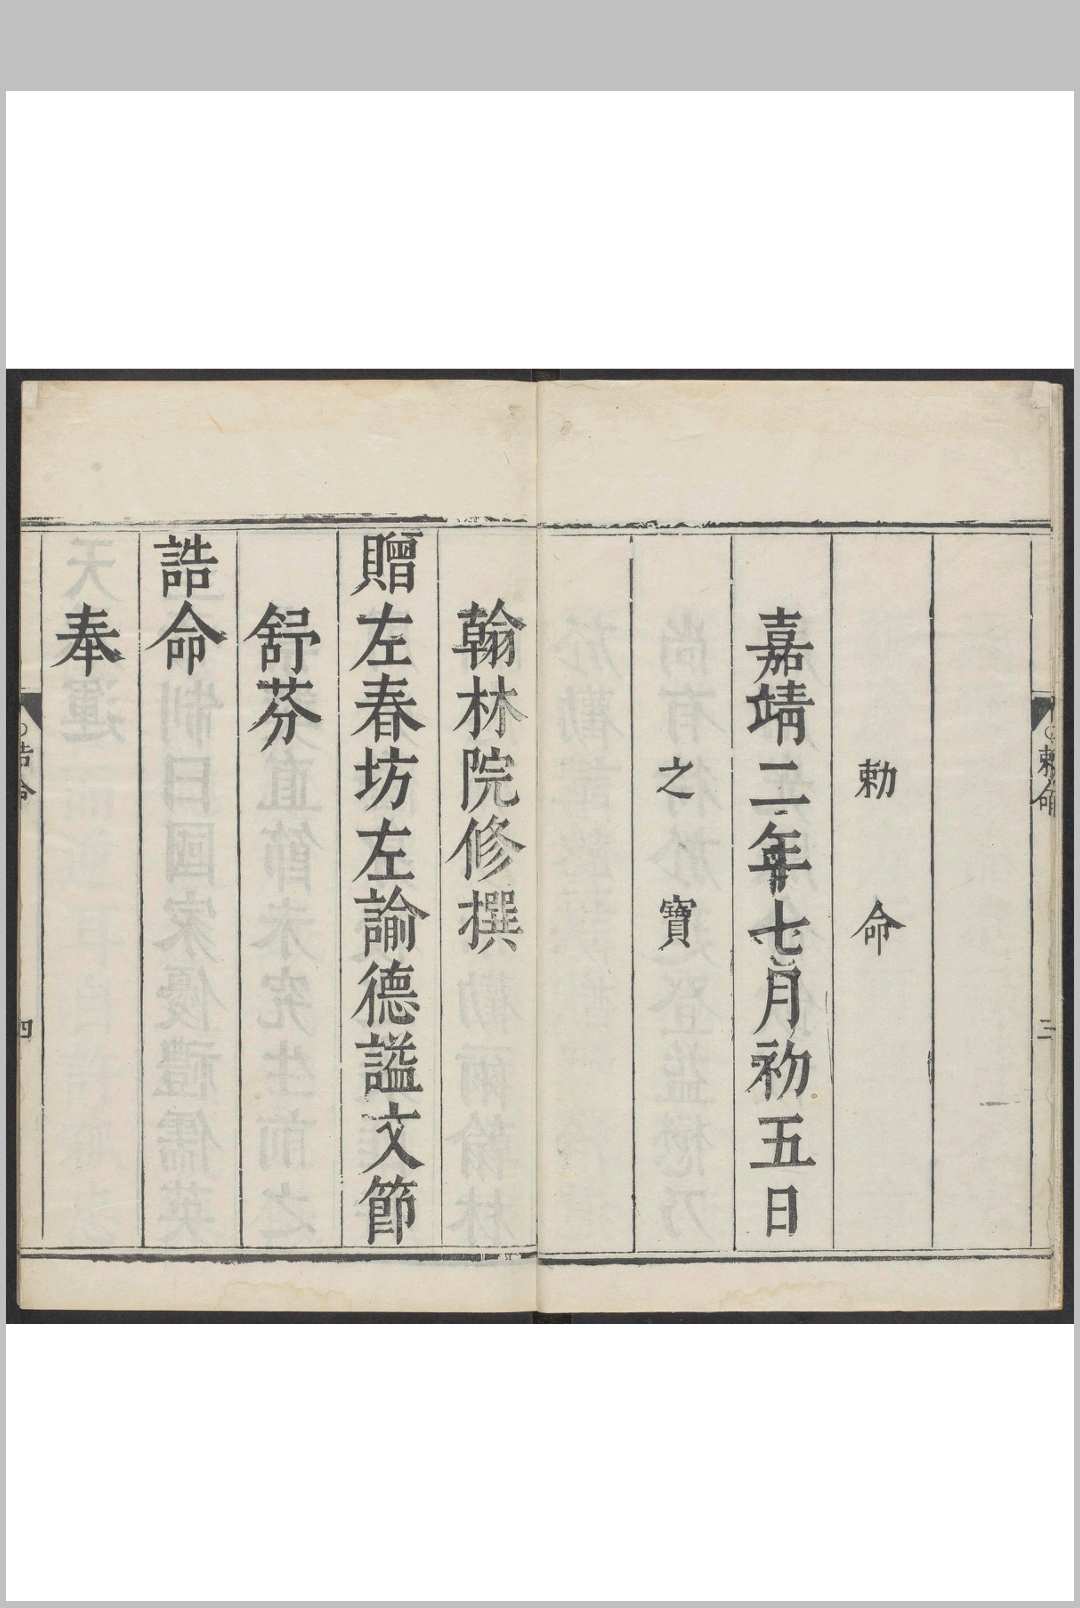 勅命
嘉靖二年七月初五日
之寶
翰林院修撰
贈左春坊左諭德謚文節
舒芬
誥命
奉